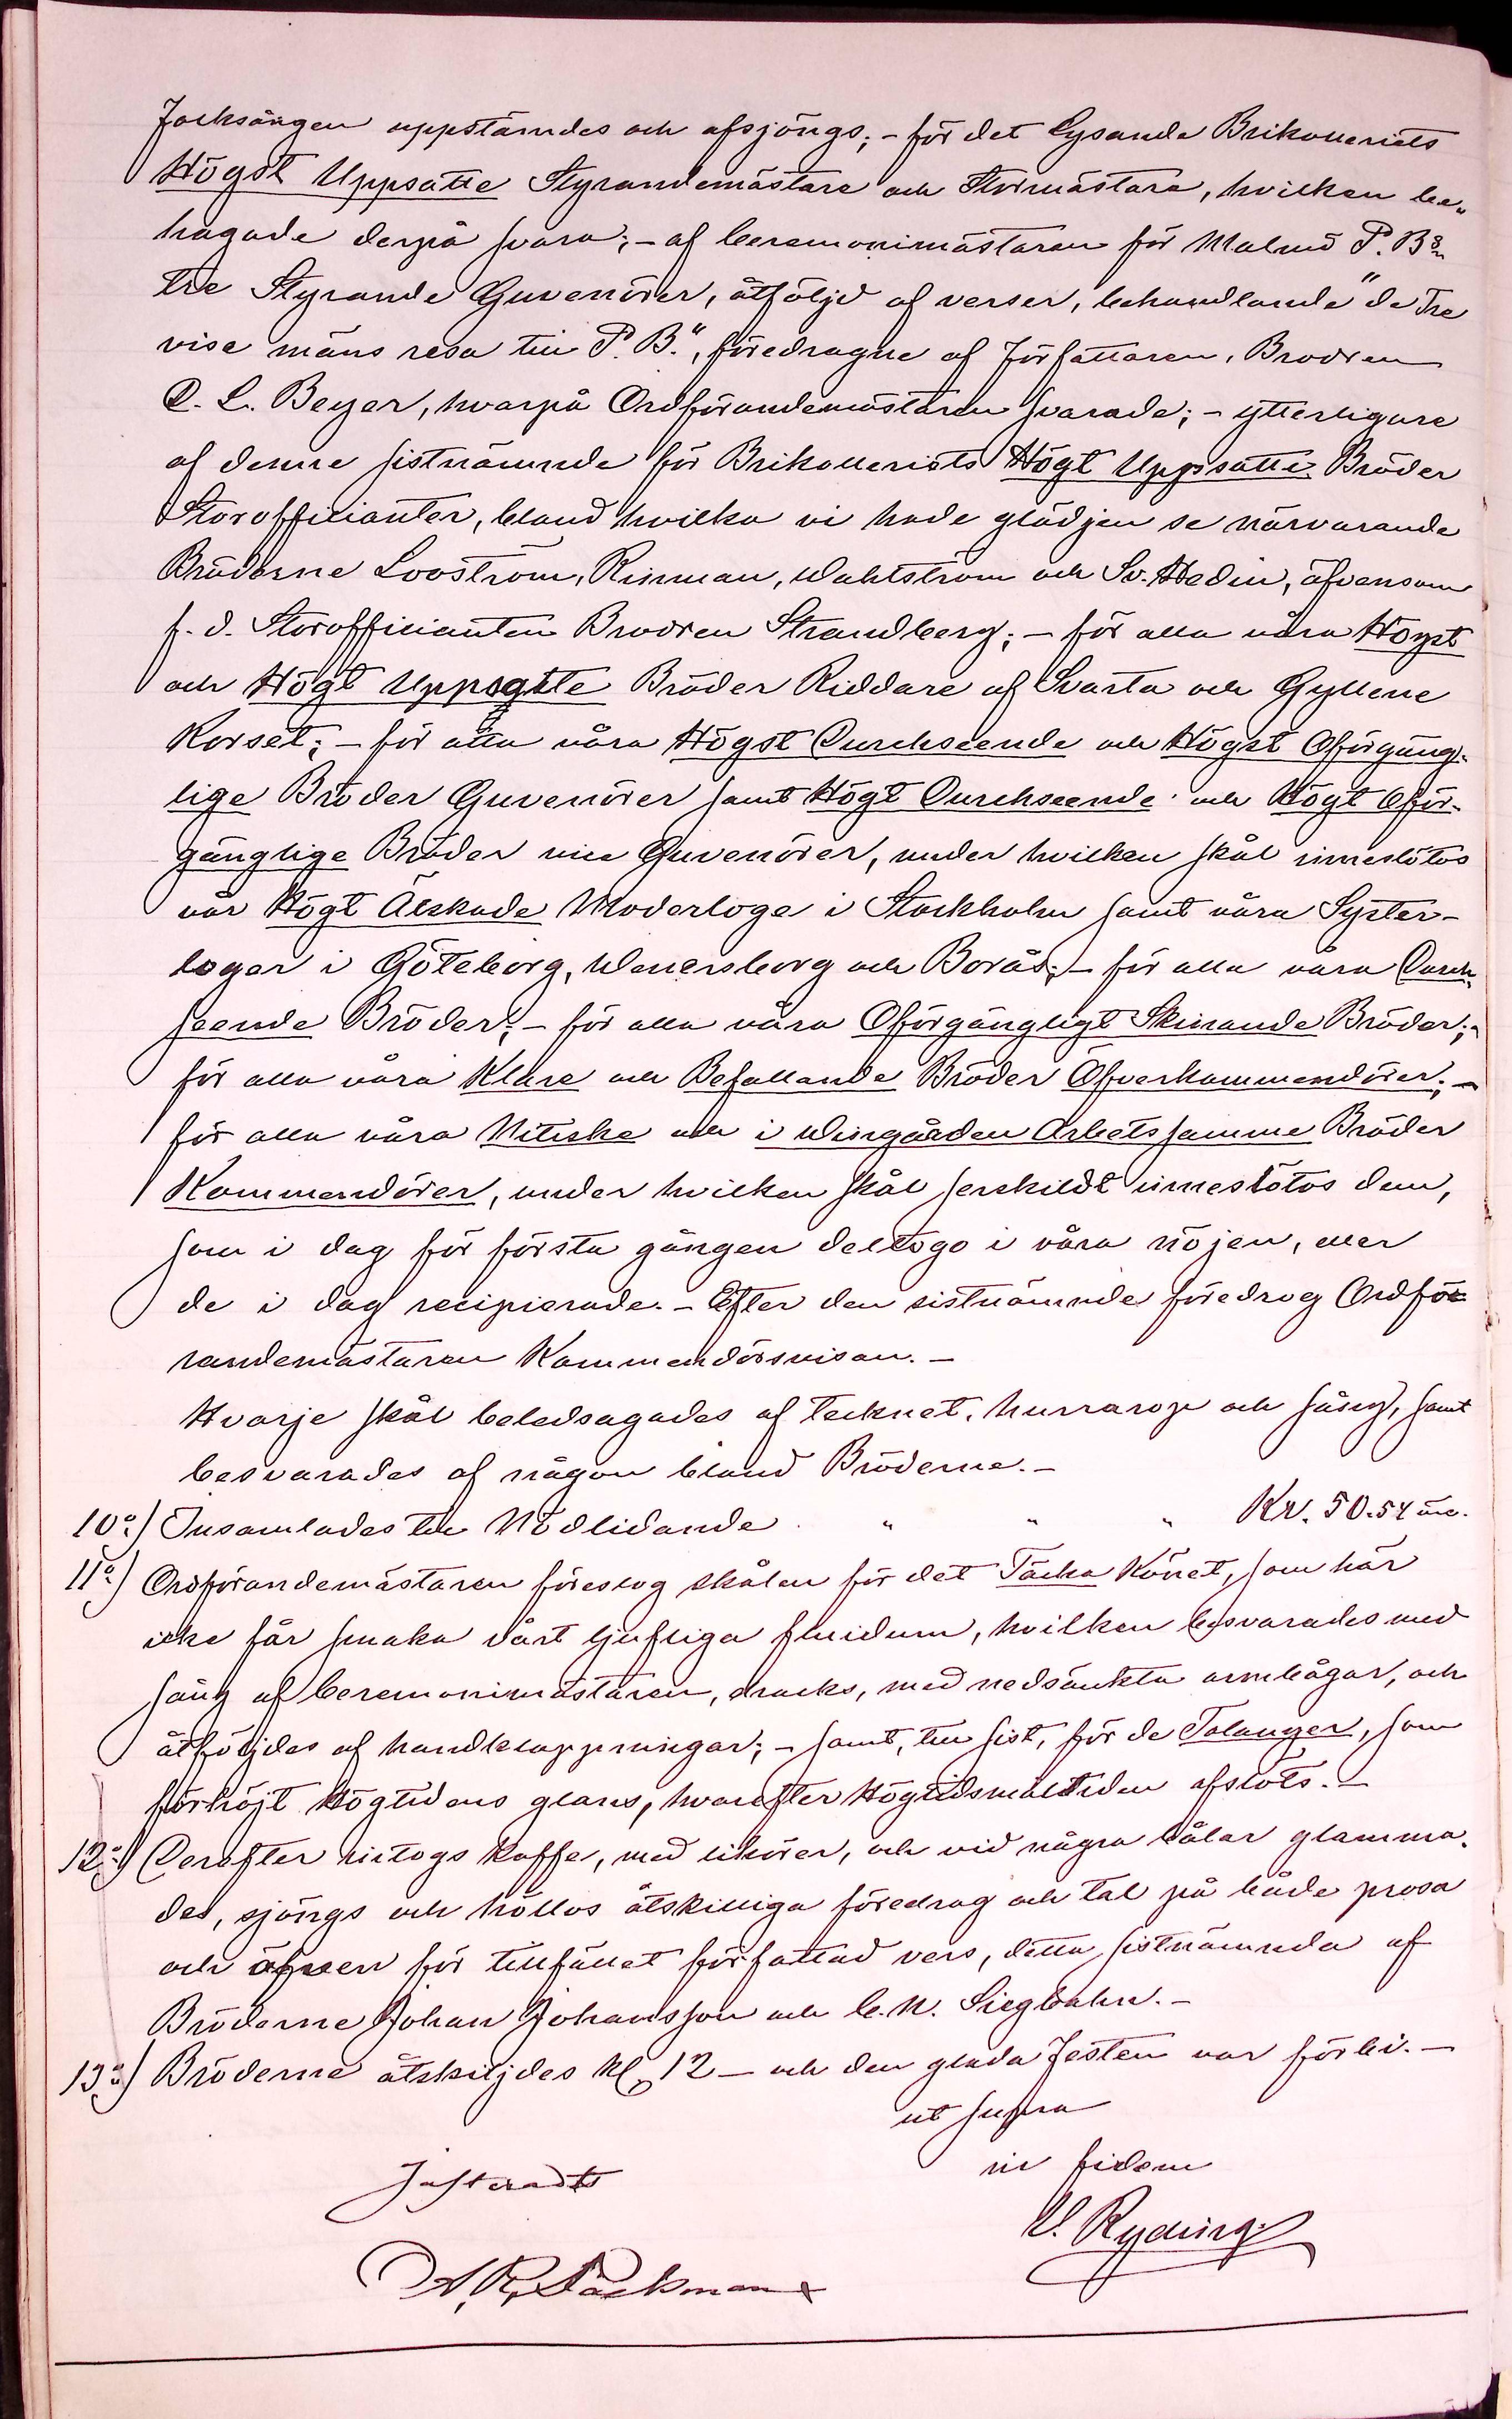 Folksången uppstämdes och afsjöngs; – för det Lysande Brikolleriets
Högst Uppsatte Styrandemästare och Stormästare, hvilken be-
hagade derpå svara; – af Ceremonimästaren för Malmö P. B:s
tre Styrande Guvenörer, åtföljd af verser, behandlande "de Tre
vise mäns resa till P. B.", föredragne af Författaren, Brodren
C. L. Beyer, hvarpå Ordförandemästaren svarade; – ytterligare
af denne sistnämnde för Brikolleriets Högt Uppsatte Bröder
Storofficianter, bland hvilka vi hade glädjen se närvarande
Bröderne Looström, Rinman, Wahlström och Sv. Hedin, äfvensom
f. d. Storofficianten Brodren Strandberg; – för alla våra Högst
och Högt Uppsatte Bröder Riddare af Svarta och Gyllene
Korset; – för alla våra Högst Durchseende och Högst Oförgäng-
lige Bröder Guvenörer samt Högt Durchseende och Högt Oför-
gänglige Bröder vice Guvenörer, under hvilken skål inneslötos
vår Högt Älskade Moderloge i Stockholm samt våra Syster-
loger i Göteborg, Wenersborg och Borås; – för alla våra Durch-
seende Bröder; – för alla våra Oförgängligt Skinande Bröder; –
för alla våra Klare och Befallande Bröder Öfverkommendörer; –
för alla våra Nitiske och i Wingården Arbetssamme Bröder
Kommendörer, under hvilken skål serskildt inneslötos dem,
som i dag för första gången deltogo i våra nöjen, eller
de i dag recipierade. – Efter den sistnämnde föredrog Ordfö-
randemästaren Kommendörsvisan. –
Hvarje skål beledsagades af tecknet, hurrarop och sång, samt
besvarades af någon bland Bröderne. –
10:o) Insamlades till Nödlidande " " " Kr. 50.54 öre.
11:o) Ordförandemästaren föreslog skålen för det Täcka Könet, som här
icke får smaka vårt ljufliga fluidum, hvilken besvarades med
sång af Ceremonimästaren, dracks, med nedsänkta armbågar, och
åtföljdes af handklappningar; – samt, till sist, för de Talanger, som
förhöjt Högtidens glans, hvarefter Högtidsmåltiden afslöts. –
12:o) Derefter intogs kaffe, med likörer, och vid några bålar glamma-
des, sjöngs och höllos åtskilliga föredrag och tal på både prosa
och äfven för tillfället författad vers, detta sistnämnda af
Bröderne Johan Johansson och C. N. Siegbahn. –
13:o) Bröderne åtskiljdes Kl. 12 – och den glada Festen var förbi. –
ut supra
in fidem
Justeradt
V. Ryding
A. R. Päckman